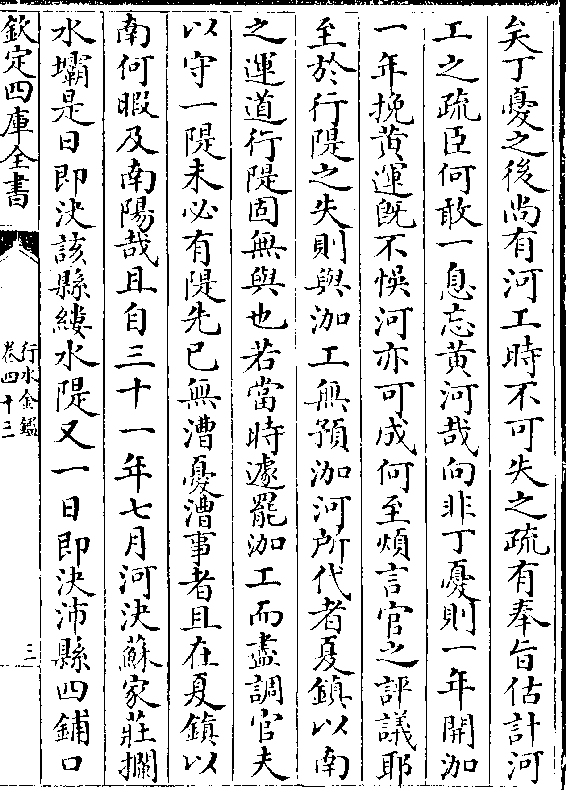 矣丁憂之後尚有河工時不可失之疏有奉旨估計河
工之疏臣何敢一息忘黄河哉向非丁憂則一年開泇
一年挽黄運既不悞河亦可成何至煩言官之評議耶
至於行隄之失則與泇工無預泇河所代者夏鎮以南
之運道行隄固無與也若當時遽罷泇工而盡調官夫
以守一隄未必有隄先已無漕憂漕事者且在夏鎮以
南何暇及南陽哉且自三十一年七月河決蘇家莊攔
水壩是日即決該縣縷水隄又一日即決沛縣四鋪口
欽定四庫全書
行水金鑑
卷四十三
三